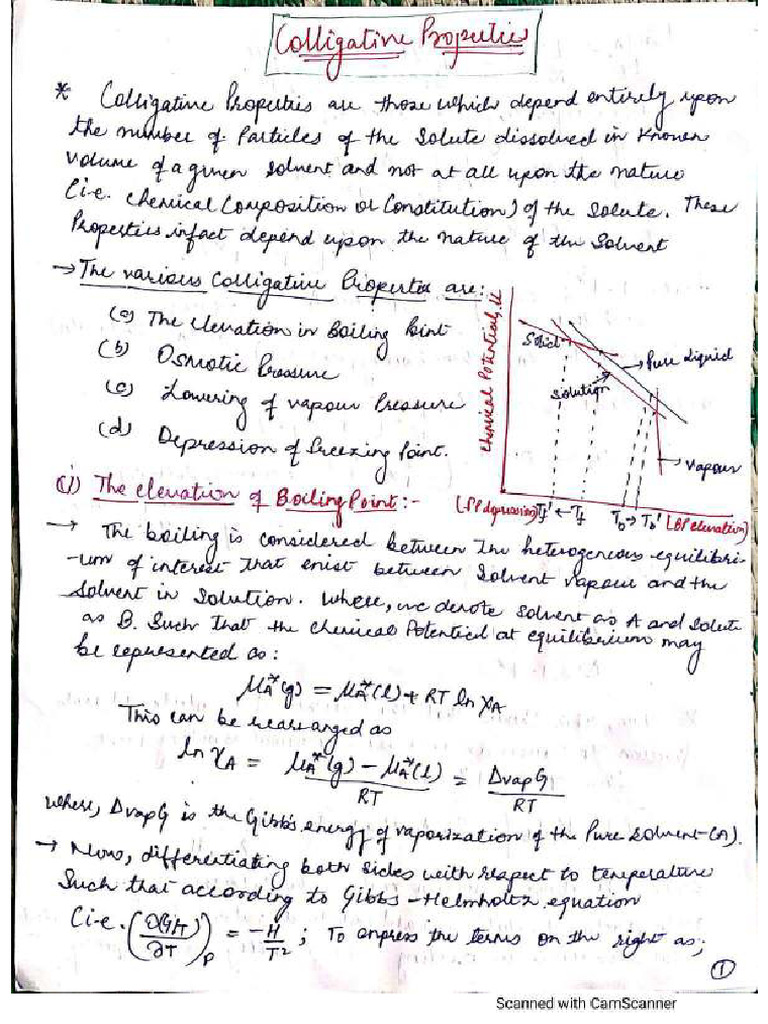 Colligative Properties
* Colligative Properties are those which depend entirely upon
the number of Particles of the Solute dissolved in Known
volume of a given Solvent and not at all upon the nature
(i.e. Chemical Composition or Constitution) of the Solute. These
Properties infact depend upon the nature of the Solvent
→ The various Colligative Properties are:
(a) The elevation in Boiling Point
(b) Osmotic Pressure
(c) Lowering of vapour Pressure
(d) Depression of freezing Point.
Chemical Potential, μ
Solid
Pure Liquid
Solution
Vapour
(FP depression) Tf' ← Tf Tb → Tb' (BP elevation)
(1) The elevation of Boiling Point:-
→ The boiling is considered between the heterogeneous equilibri-
-um of interest that exist between Solvent vapour and the
Solvent in Solution. Where, we denote solvent as A and solute
as B. Such that the chemical Potential at equilibrium may
be represented as:
μA*(g) = μA*(l) + RT ln χA
This can be rearranged as
ln χA = μA*(g) - μA*(l) / RT = ΔvapG / RT
where, ΔvapG is the Gibbs energy of vaporization of the Pure Solvent (A).
→ Now, differentiating both sides with respect to temperature
Such that according to Gibbs-Helmholtz equation
(i.e. (∂G/T / ∂T)P = -H/T²; To express the terms on the right as;
1
Scanned with CamScanner